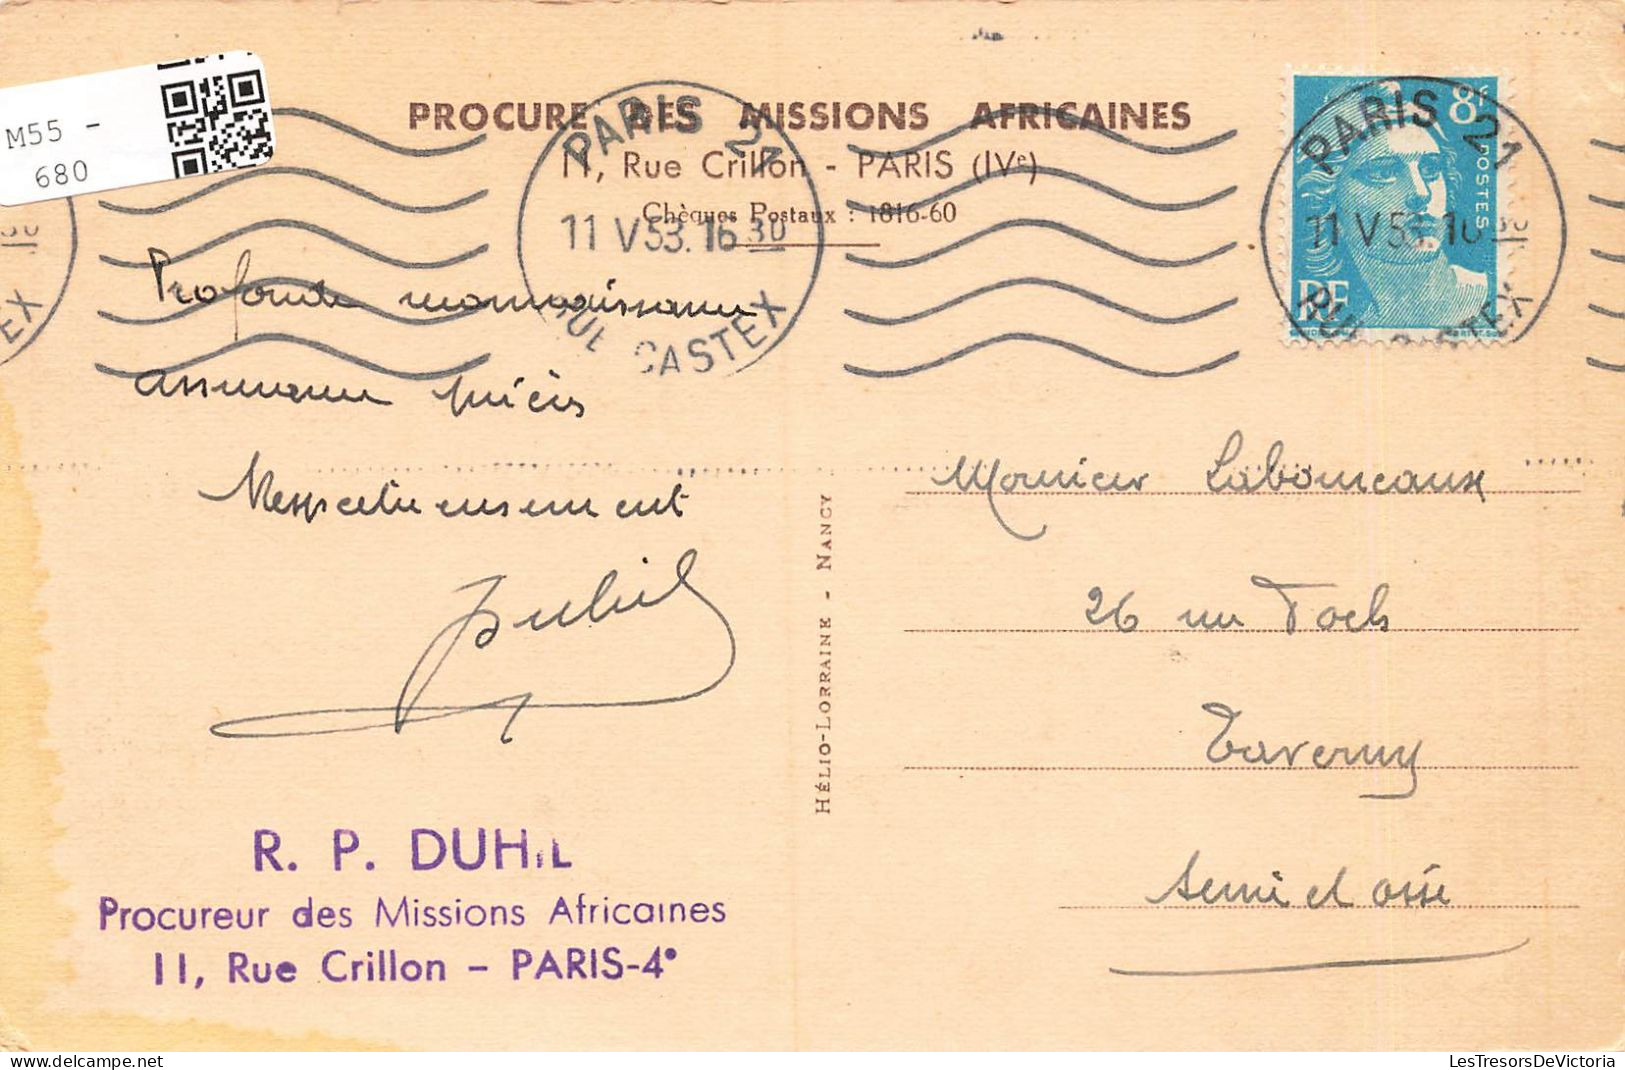 M55 -
680
PROCURE DES MISSIONS AFRICAINES
11, Rue Crillon - PARIS (IVe)
Chèques Postaux : 1816-60
PARIS 21
11 V 53. 16 30
RUE CASTEX
8F
POSTES
RF
PARIS 21
11 V 53. 16 30
RUE CASTEX
Profonde reconnaissance
assurance prières
Respectueusement
Duhil
R. P. DUHIL
Procureur des Missions Africaines
11, Rue Crillon - PARIS-4e
HÉLIO-LORRAINE - NANCY
Monsieur Labouceaux
26 rue Foch
Taverny
Seine et Oise
LesTresorsDeVictoria